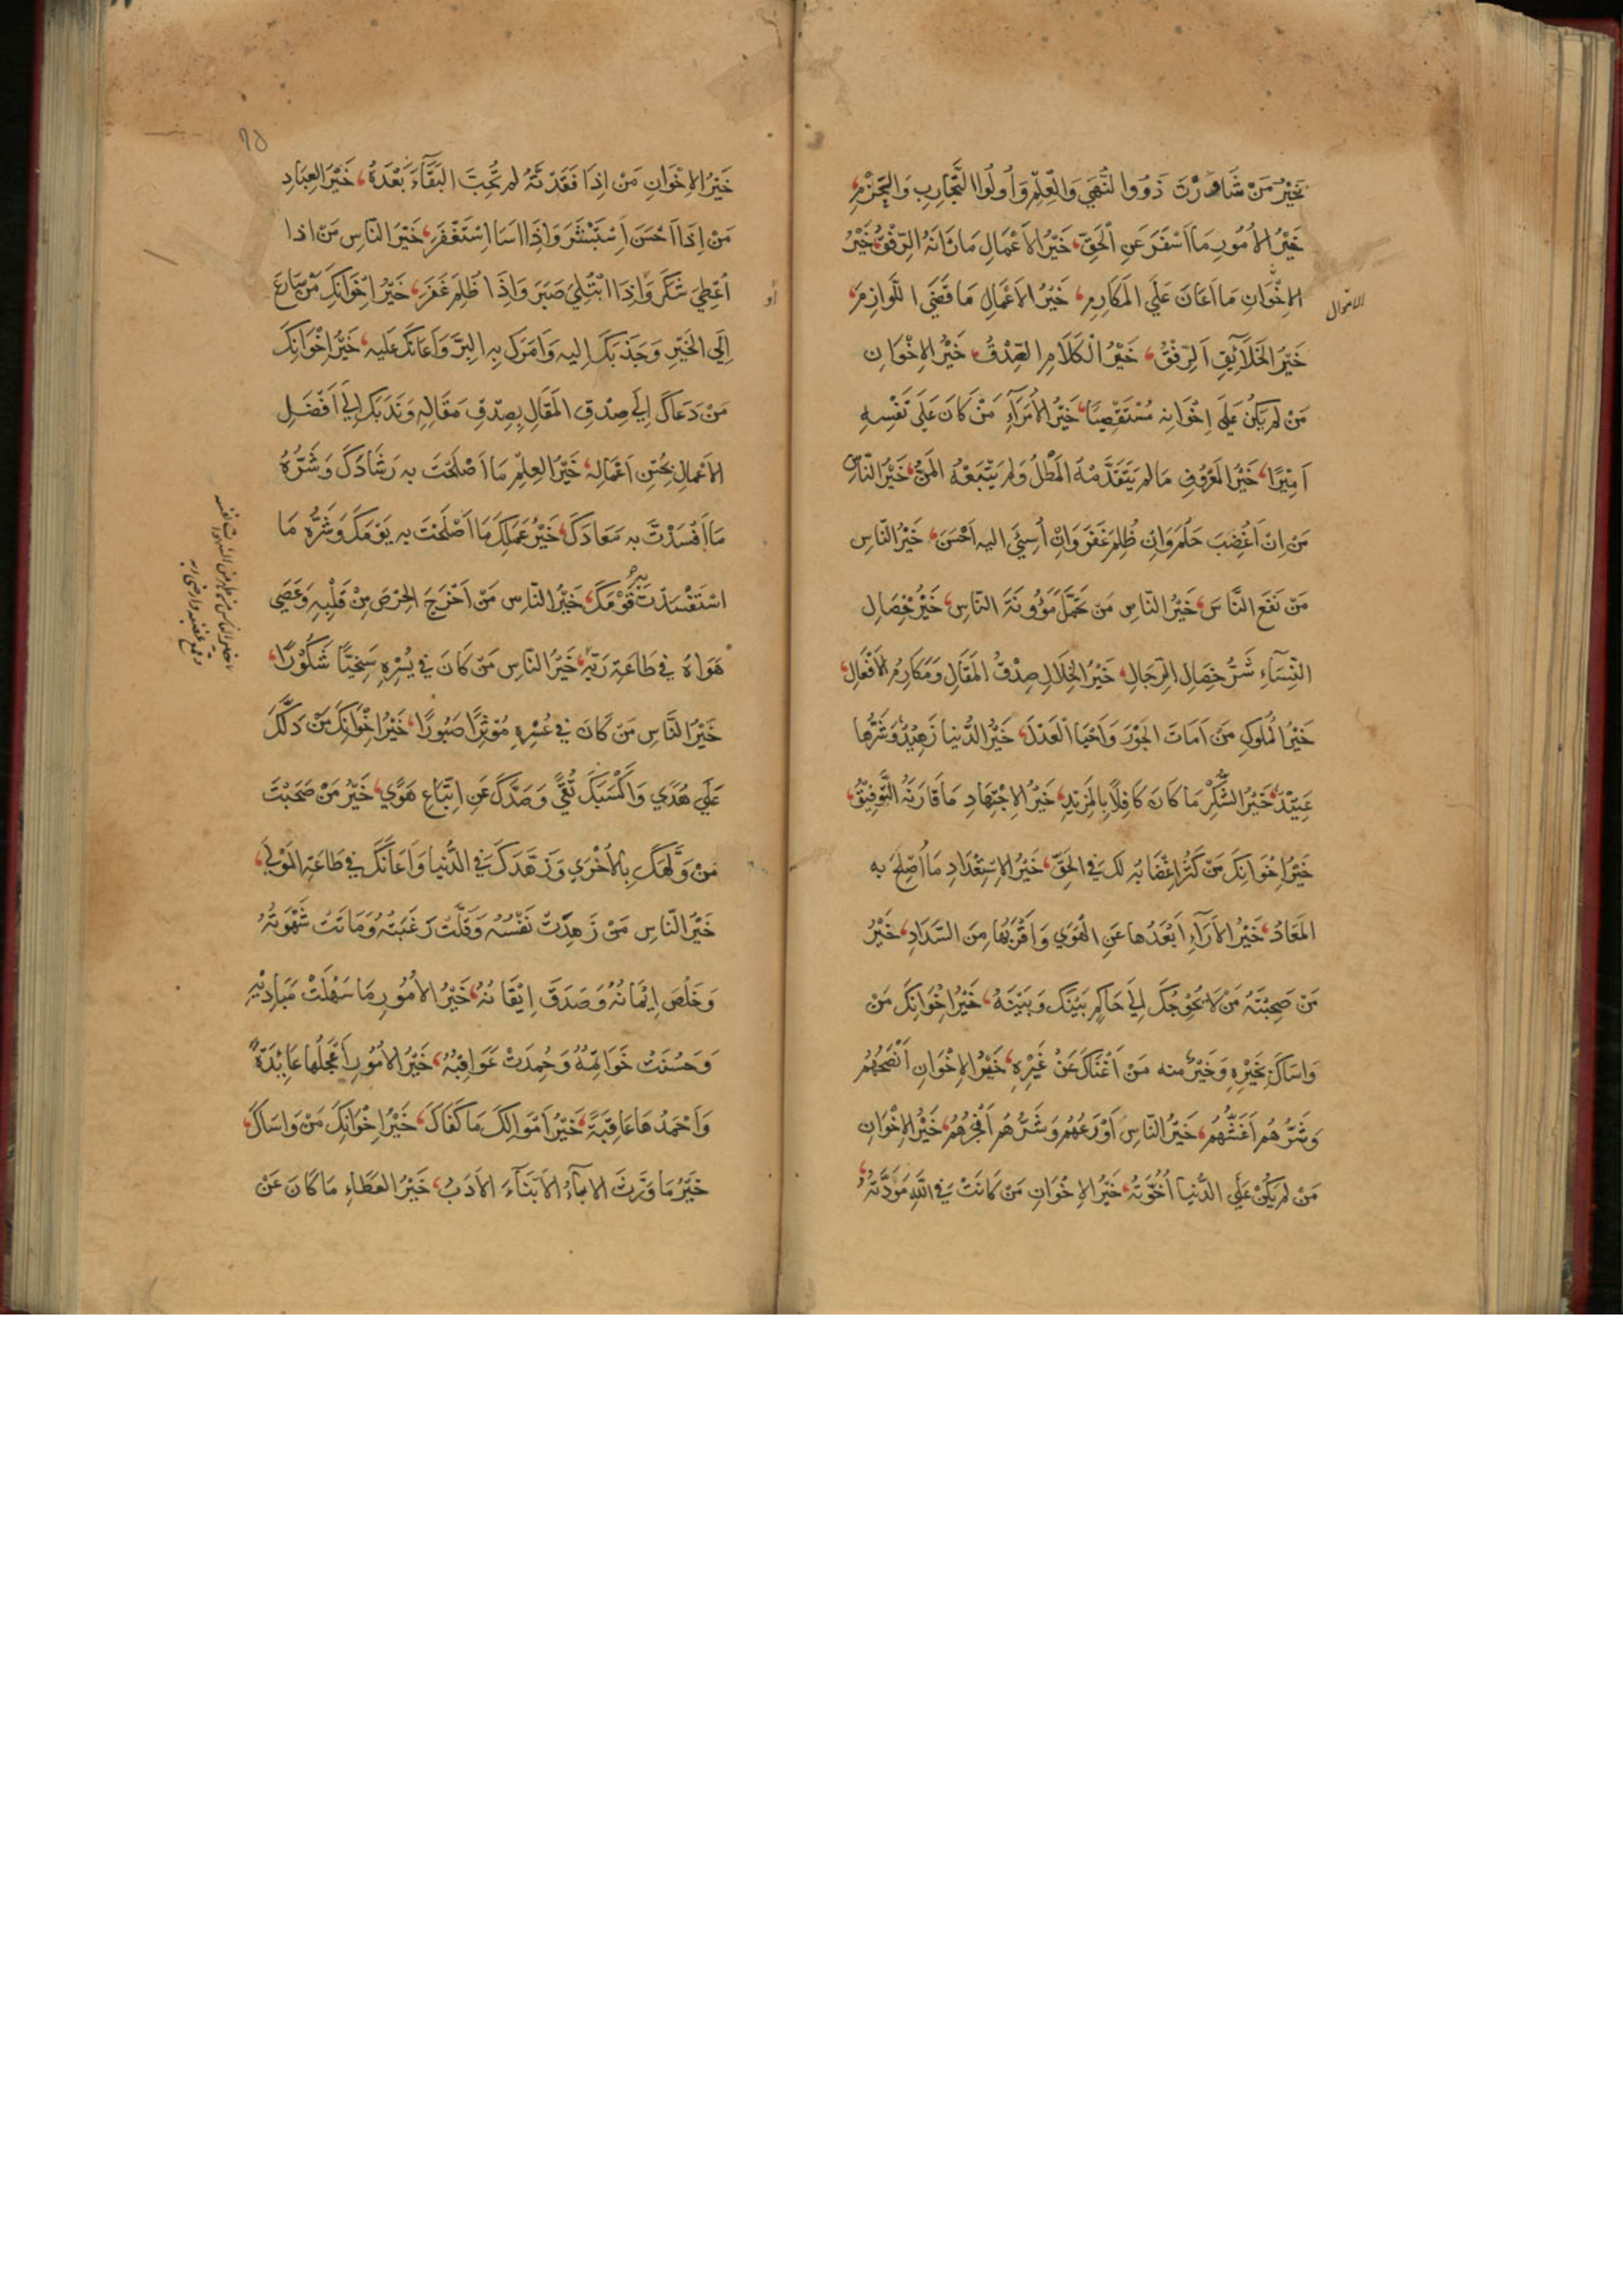 خَيْرُ مَنْ شَاوَرْتَ ذَوُوا النُّهَي وَالْعِلْمِ وَاُولُوا التَّجَارِبِ وَالحَزْمِ،
خَيْرُ الاُمُورِ مَا اَسْفَرَ عَنِ الْحَقِّ، خَيْرُ الاَعْمَالِ مَا زَانَهُ الرِّفْقُ، خَيْرُ
الاِخْوَانِ مَا اَعَانَ عَلَي المَكَارِمِ، خَيْرُ الاَعْمَالِ مَا قَضَي اللَّوَازِمَ،
الاموال
خَيْرُ الخَلَآئِقِ اَلرِّفْقُ، خَيْرُ الْكَلَامِ الصِّدْقُ، خَيْرُ الاِخْوَانِ
مَنْ لَمْ يَكُنْ عَلَي اِخْوَانِه مُسْتَقْصِيًا، خَيْرُ الاُمَرَآءِ مَنْ كَانَ عَلَي نَفْسِهِ
اَمِيْرًا، خَيْرُ المَعْرُوفِ مَا لم يَتَقَدَّمْهُ المَطْلُ وَلم يَتْبَعْهُ المَنُّ، خَيْرُ النَّاسِ
مَنْ اِنْ اُغْضِبَ حَلُمَ وَاِنْ ظُلِمَ غَفَرَ وَاِنْ اُسِيْئَ اليه اَحْسَنَ، خَيْرُ النَّاسِ
مَنْ نَفَعَ النَّاسَ، خَيْرُ النَّاسِ مَن تَحَمَّلَ مَؤُونَةَ النَّاسِ، خَيْرُ خِصَالِ
النِّسَآءِ شَرُّ خِصَالِ الرِّجَالِ، خَيْرُ الخِلَالِ صِدْقُ المَقَالِ وَمَكَارِمُ الاَفْعَالِ،
خَيْرُ المُلُوكِ مَنْ اَمَاتَ الجَوْرَ وَاَحْيَا الْعَدْلَ، خَيْرُ الدُّنيا زَهِيْدٌ وَشَرُّها
عَتِيْدٌ، خَيْرُ الشُّكْرِ مَا كَانَ كَافِلًا بِالمَزِيْدِ، خَيْرُ الاِجْتِهَادِ مَا قَارَنَهُ التَّوْفِيْقُ،
خَيْرُ اِخْوَانِكَ مَنْ كَثُرَ اِغْضَابُهُ لَكَ فِي الحَقِّ، خَيْرُ الاِسْتِعْدَادِ مَا اُصْلِحَ به
المَعَادُ، خَيْرُ الاَرَآءِ اَبْعَدُها عَنِ الهَوَي وَاَقْرَبُهَا مِنَ السَّدَادِ، خَيْرُ
مَنْ صَحِبْتَهُ مَنْ لَا يُحْوِجُكَ اِلَي حَاكِمٍ بَيْنَكَ وَبَيْنَهُ، خَيْرُ اِخْوَانِكَ مَنْ
وَاسَاكَ بِخَيْرِهِ وَخَيْرٌ منه مَنْ اَغْنَاكَ عَنْ غَيْرِهِ، خَيْرُ الاِخْوَانِ اَنْصَحُهُمْ
وَشَرُّهُمْ اَغَشُّهُمْ، خَيْرُ النَّاسِ اَوْرَعُهُمْ وَشَرُّهُمْ اَفْجَرُهُمْ، خَيْرُ الاِخْوَانِ
مَنْ لَمْ يَكُنْ عَلَي الدُّنيا اُخُوَّتُهُ، خَيْرُ الاِخْوَانِ مَنْ كَانَتْ فِي اللّٰهِ مَوَدَّتُهُ،
٦٥
خَيْرُ الاِخْوَانِ مَنْ اِذَا فَقَدْتَهُ لم تُحِبَّ البَقَآءَ بَعْدَهُ، خَيْرُ العِبَادِ
مَنْ اِذَا اَحْسَنَ اِسْتَبْشَرَ وَاِذَا اسَا اِسْتَغْفَرَ، خَيْرُ النَّاسِ مَنْ اذا
اُعْطِيَ شَكَرَ وَاِذَا ابْتُلِيَ صَبَرَ وَاِذَا ظُلِمَ غَفَرَ، خَيْرُ اِخْوَانِكَ مَنْ سَارَعَ
اِلَي الخَيْرِ وَجَذَبَكَ اِليه وَاَمَرَكَ بِهِ البِرَّ وَاَعَانَكَ عَليه، خَيْرُ اِخْوَانِكَ
مَنْ دَعَاكَ اِلَي صِدْقِ المَقَالِ بِصِدْقِ مَقَالِهِ وَنَدَبَكَ اِلَي اَفْضَلِ
الاَعْمَالِ بِحُسْنِ اَعْمَالِه، خَيْرُ العِلْمِ مَا اَصْلَحْتَ به رَشَادَكَ وَشَرُّهُ
مَا اَفْسَدْتَ به مَعَادَكَ، خَيْرُ عَمَلِكَ مَا اَصْلَحْتَ به يَوْمَكَ وَشَرُّه مَا
اسْتَفْسَدْتَ به قَوْمَكَ، خَيْرُ النَّاسِ مَنْ اَخْرَجَ الحِرْصَ مِنْ قَلْبِهِ وَعَصَي
هَوَاهُ في طَاعَةِ رَبِّه، خَيْرُ النَّاسِ مَنْ كَانَ في يُسْرِهِ سَخِيًّا شَكُوْرًا،
خَيْرُ النَّاسِ مَنْ كَانَ في عُسْرِهِ مُوْثِرًا صَبُورًا، خَيْرُ اِخْوَانِكَ مَنْ دَلَّكَ
عَلَي هُدَي وَاَكْسَبَكَ تُقَيً وَصَدَّكَ عَنِ اِتِّبَاعِ هَوًي، خَيْرُ مَنْ صَحَبْتَ
مَنْ وَلَّهَكَ بِالاُخْرَي وَزَهَّدَكَ فِي الدُّنيا وَاَعَانَكَ في طَاعَةِ المَوْلَي،
خَيْرُ النَّاسِ مَنْ زَهِدَتْ نَفْسُهُ وَقَلَّتْ رَغْبَتُهُ وَمَاتَتْ شَهْوَتُهُ
وَخَلُصَ اِيْمَانُهُ وَصَدَقَ اِيْقَانُهُ، خَيْرُ الاُمُورِ مَا سَهُلَتْ مَبَادِيْهِ
وَحَسُنَتْ خَوَاتِمُهُ وَحُمِدَتْ عَوَاقِبُهُ، خَيْرُ الاُمُورِ اَعْجَلُها عَائِدَةً
وَاَحْمَدُهَا عَاقِبَةً، خَيْرُ اَمْوَالِكَ مَا كَفَاكَ، خَيْرُ اِخْوَانِكَ مَنْ وَاسَاكَ،
خَيْرُ مَا وَرَّثَ الابآءُ الاَبْنَآءَ الاَدَبُ، خَيْرُ العَطَاءِ مَا كَانَ عَنْ